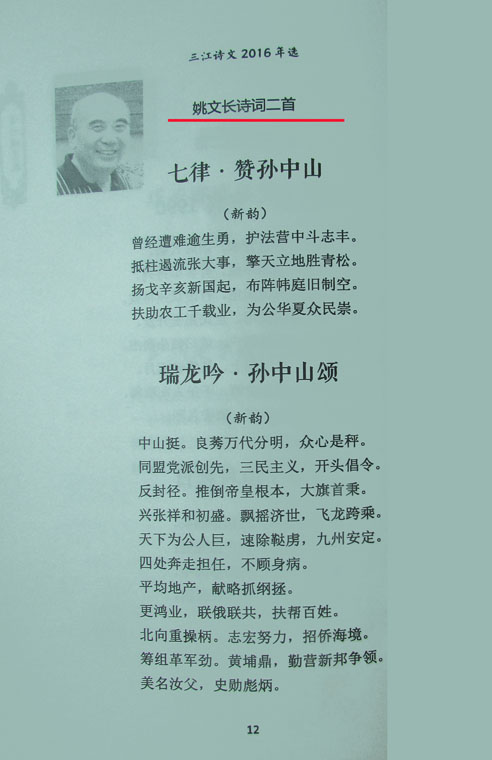 三江诗文2016年选
姚文长诗词二首
七律·赞孙中山
（新韵）
曾经遭难逾生勇，护法营中斗志丰。
抵柱遏流张大事，擎天立地胜青松。
扬戈辛亥新国起，布阵帏庭旧制空。
扶助农工千载业，为公华夏众民崇。
瑞龙吟·孙中山颂
（新韵）
中山挺。良莠万代分明，众心是秤。
同盟党派创先，三民主义，开头倡令。
反封径。推倒帝皇根本，大旗首秉。
兴张祥和初盛。飘摇济世，飞龙跨乘。
天下为公人巨，速除鞑虏，九州安定。
四处奔走担任，不顾身病。
平均地产，献略抓纲拯。
更鸿业，联俄联共，扶帮百姓。
北向重操柄。志宏努力，招侨海境。
筹组革军劲。黄埔鼎，勤营新邦争领。
美名汝父，史勋彪炳。
12